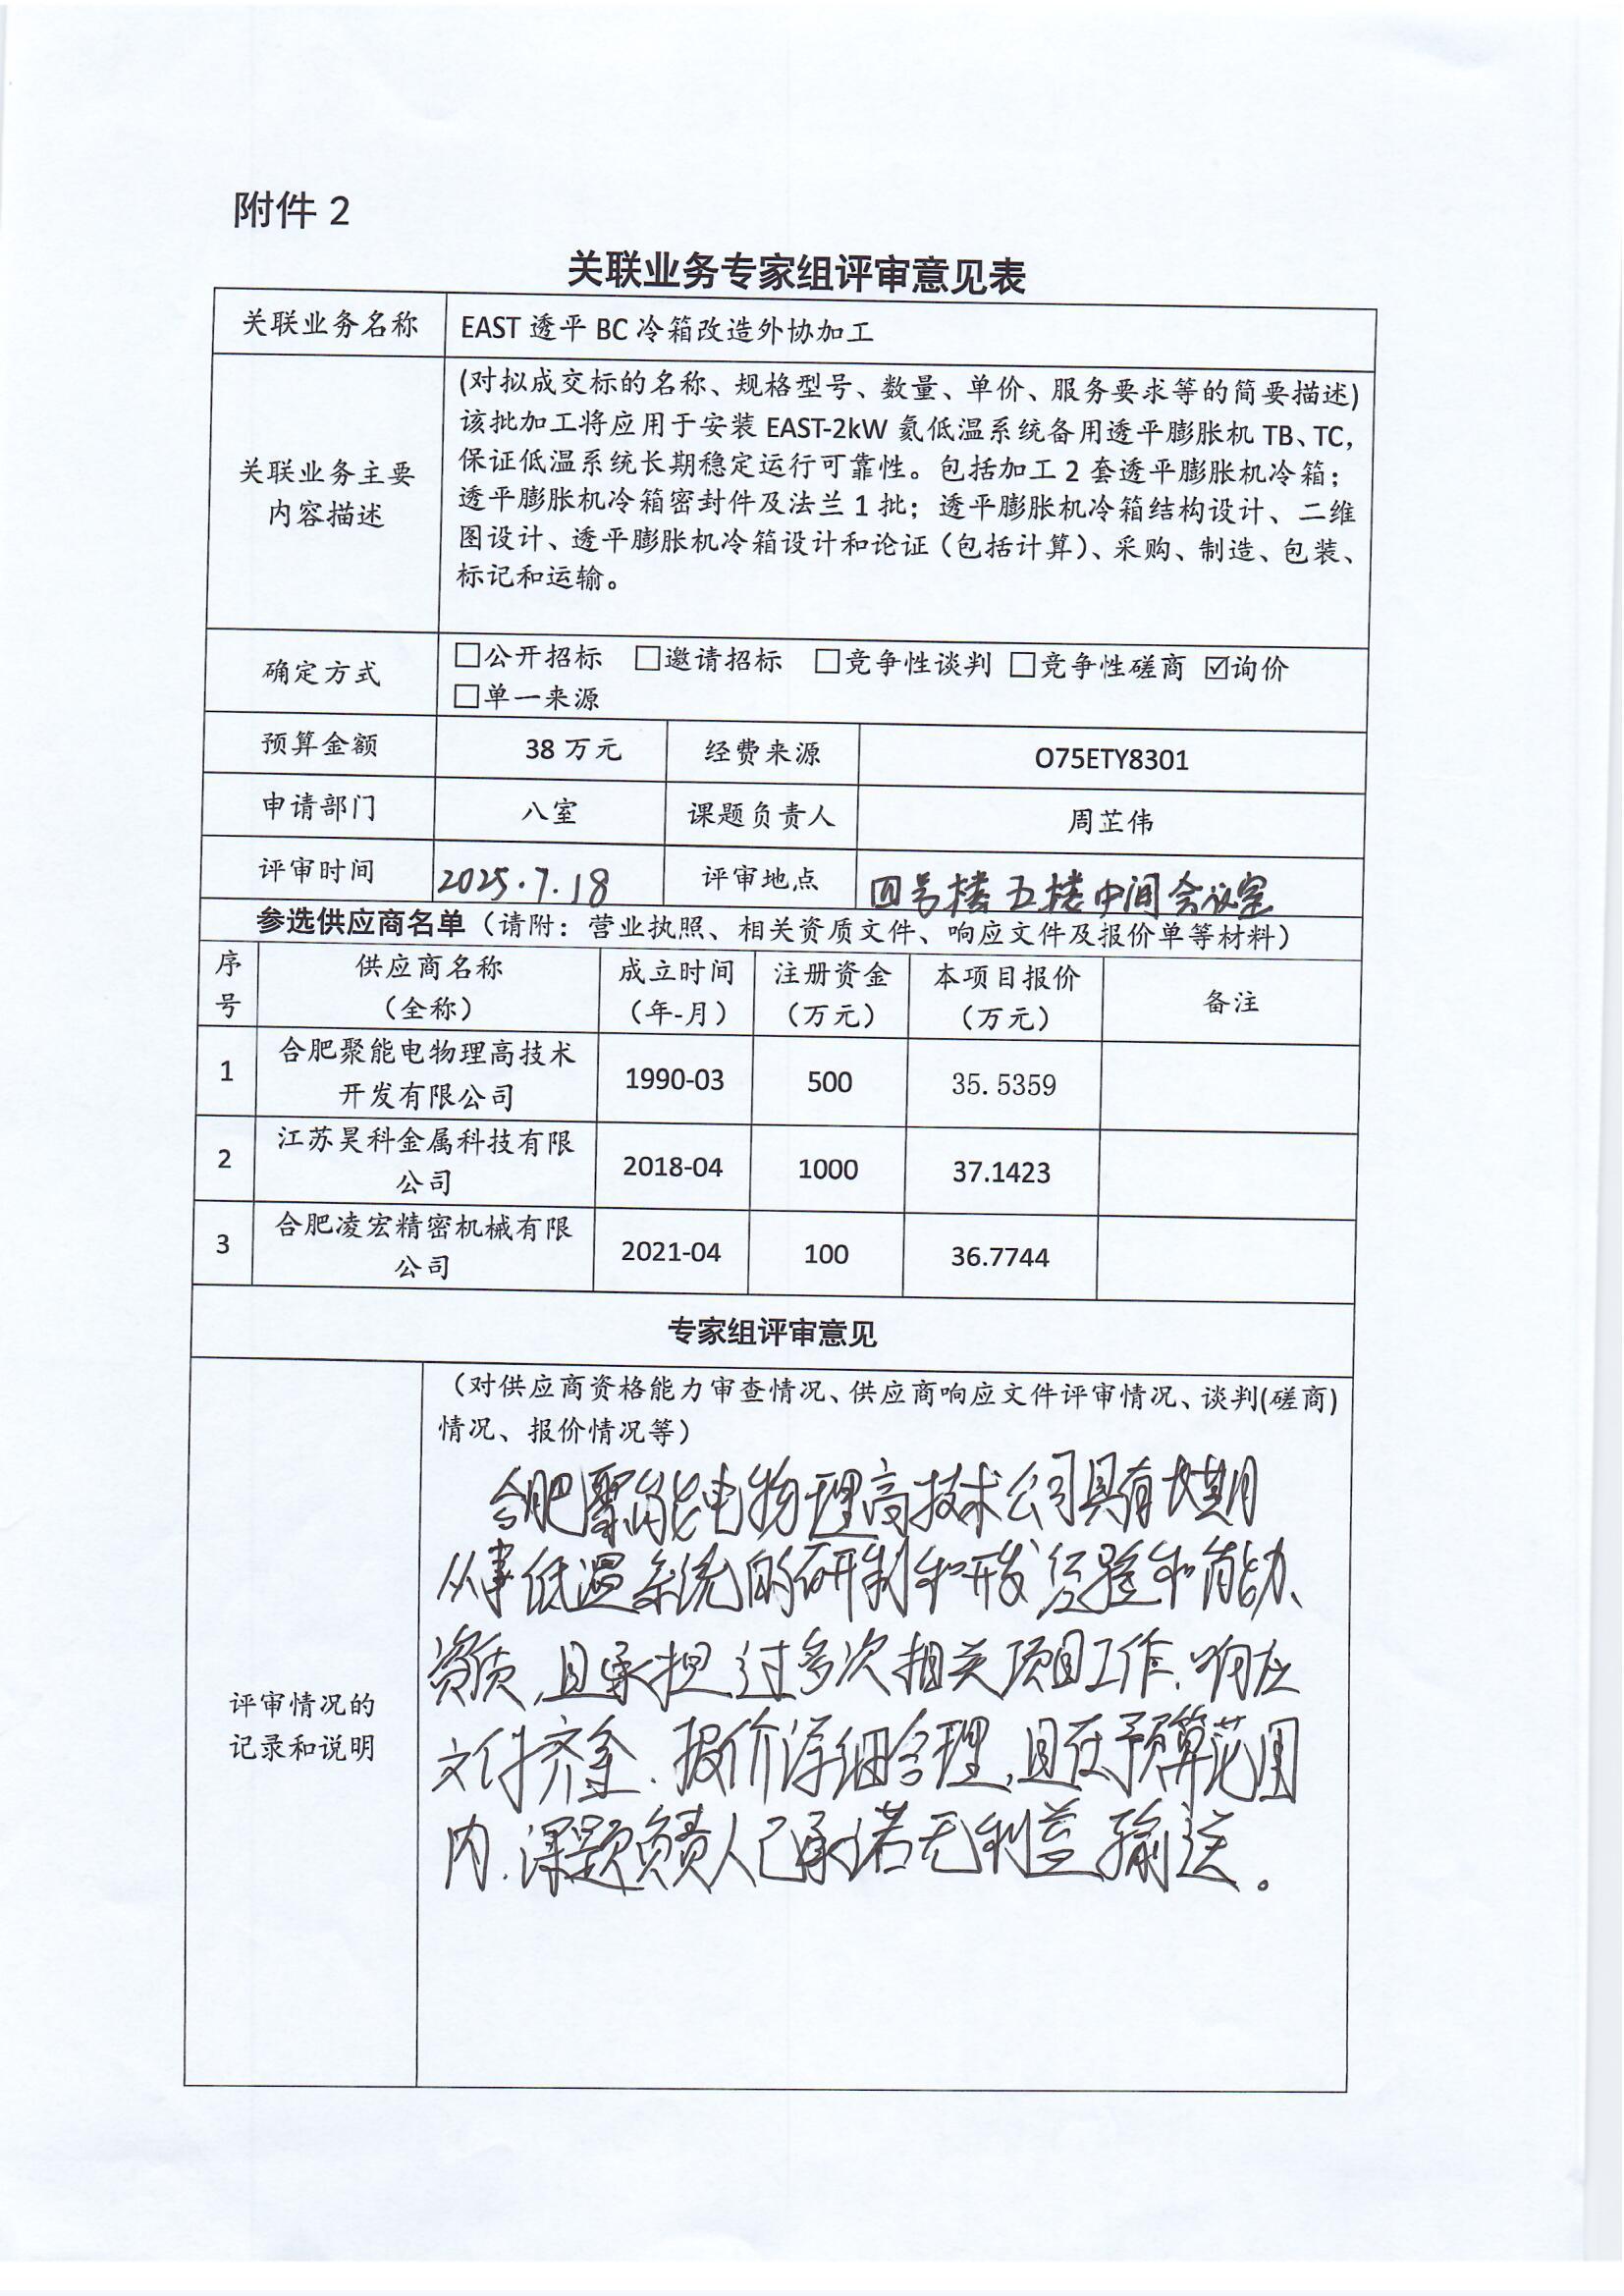 附件 2
关联业务专家组评审意见表
关联业务名称 EAST 透平 BC 冷箱改造外协加工
关联业务主要
内容描述
(对拟成交标的名称、规格型号、数量、单价、服务要求等的简要描述)
该批加工将应用于安装 EAST-2kW 氦低温系统备用透平膨胀机 TB、TC,
保证低温系统长期稳定运行可靠性。包括加工 2 套透平膨胀机冷箱；
透平膨胀机冷箱密封件及法兰 1 批；透平膨胀机冷箱结构设计、二维
图设计、透平膨胀机冷箱设计和论证（包括计算）、采购、制造、包装、
标记和运输。
确定方式
☐公开招标 ☐邀请招标 ☐竞争性谈判 ☐竞争性磋商 ☑询价
☐单一来源
预算金额 38 万元 经费来源 O75ETY8301
申请部门 八室 课题负责人 周芷伟
评审时间 2025.7.18 评审地点 四号楼五楼中间会议室
参选供应商名单（请附：营业执照、相关资质文件、响应文件及报价单等材料）
序 供应商名称 成立时间 注册资金 本项目报价 备注
号 （全称） （年-月） （万元） （万元）
1 合肥聚能电物理高技术 1990-03 500 35.5359
开发有限公司
2 江苏昊科金属科技有限 2018-04 1000 37.1423
公司
3 合肥凌宏精密机械有限 2021-04 100 36.7744
公司
专家组评审意见
评审情况的
记录和说明
（对供应商资格能力审查情况、供应商响应文件评审情况、谈判(磋商)
情况、报价情况等）
合肥聚能电物理高技术公司具有长期
从事低温系统的研制和开发经验和能力、
资质,且承担过多次相关项目工作.响应
文件齐全.报价详细合理,且在预算范围
内.课题负责人已承诺无利益输送。